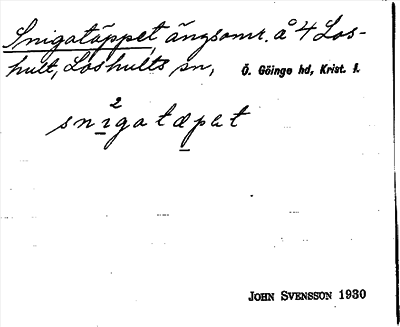 Snigatäppet, ängsomr. å 4 Los-
hult, Loshults sn, Ö. Göinge hd, Krist. l.
sn²igatæpet
JOHN SVENSSON 1930